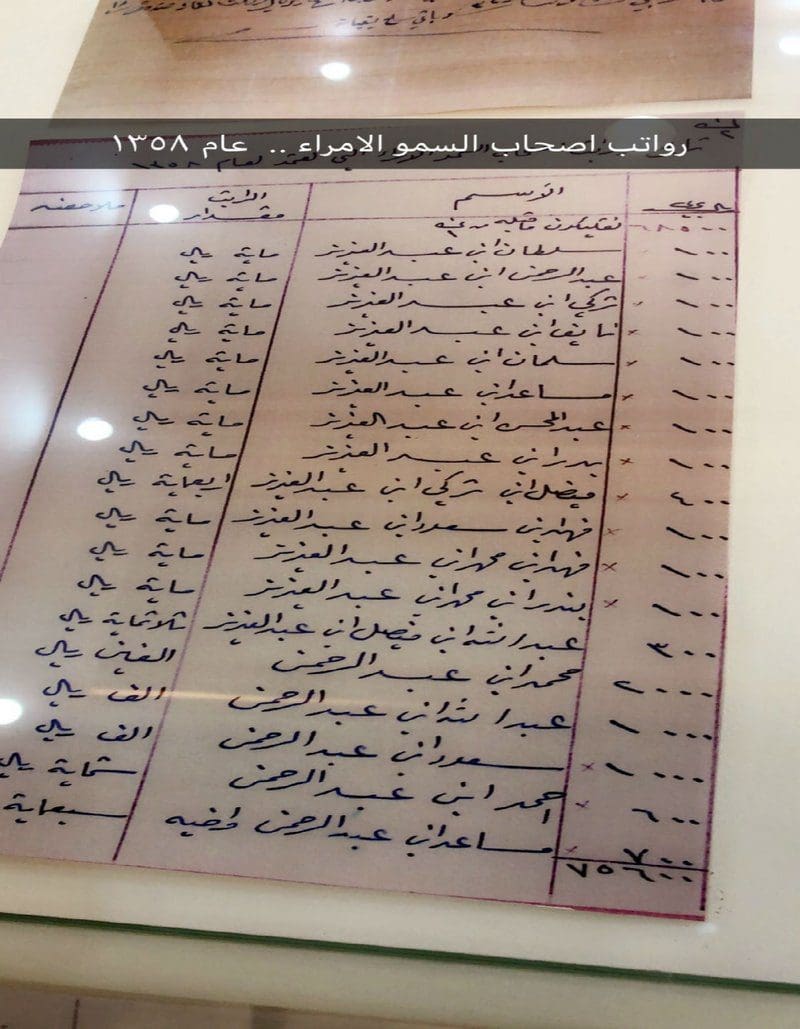 وباقي
رواتب اصحاب السمو الامراء .. عام ١٣٥٨
لعام ١٣٥٨
ريال عربي الاسم مقدار الراتب ملاحظه
٦٨٥٠٠ نقليكون ماقبله
١٠٠ سلطان ابن عبد العزيز ماية ريال
١٠٠ عبد الرحمن ابن عبد العزيز ماية ريال
١٠٠ × تركي ابن عبد العزيز ماية ريال
١٠٠ × نايف ابن عبد العزيز ماية ريال
١٠٠ × سلمان ابن عبد العزيز ماية ريال
١٠٠ × مساعد ابن عبد العزيز ماية ريال
١٠٠ × عبد المحسن ابن عبد العزيز ماية ريال
١٠٠ × بدر ابن عبد العزيز ماية ريال
٤٠٠ × فيصل ابن تركي ابن عبد العزيز اربعماية ريال
١٠٠ × فهد ابن سعود ابن عبد العزيز ماية ريال
١٠٠ × فهد ابن محمد ابن عبد العزيز ماية ريال
١٠٠ × بندر ابن محمد ابن عبد العزيز ماية ريال
٣٠٠ عبد الله ابن فيصل ابن عبد العزيز ثلاثماية ريال
٢٠٠٠ محمد ابن عبد الرحمن الفين ريال
١٠٠٠ عبد الله ابن عبد الرحمن الف ريال
١٠٠٠ × سعود ابن عبد الرحمن الف ريال
٦٠٠ × احمد ابن عبد الرحمن ستماية ريال
٧٠٠ × مساعد ابن عبد الرحمن واخيه سبعماية
٧٥٦٠٠